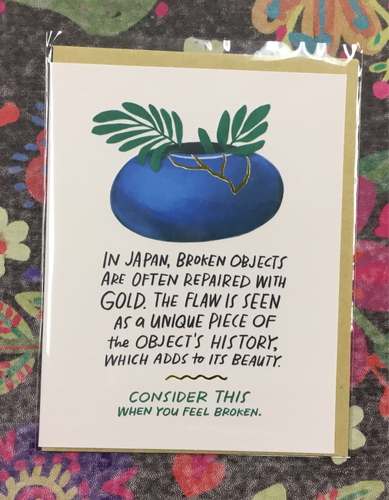 IN JAPAN, BROKEN OBJECTS
ARE OFTEN REPAIRED WITH
GOLD. THE FLAW IS SEEN
AS a UNIQUE PIECE OF
the OBJECT'S HISTORY,
WHICH ADDS to ITS BEAUTY.
CONSIDER THIS
WHEN YOU FEEL BROKEN.